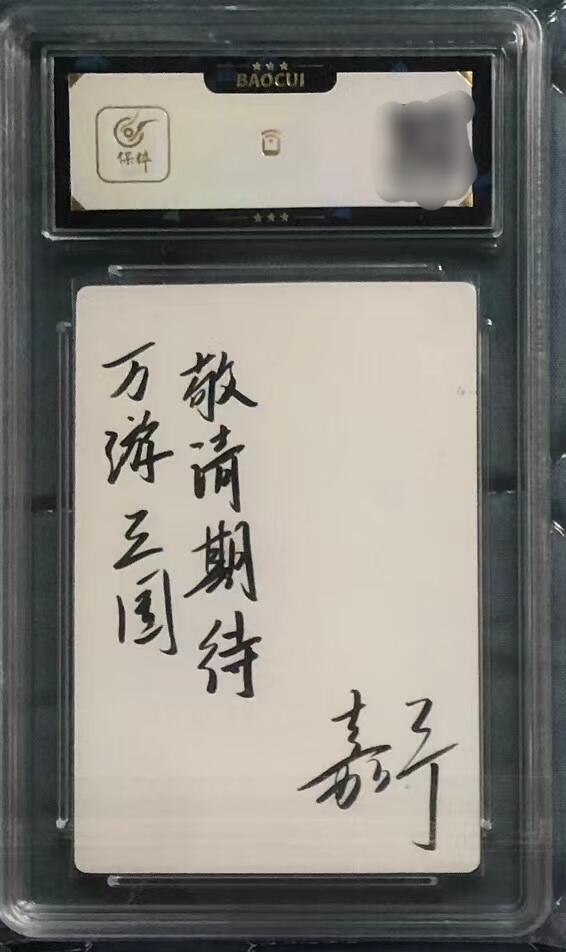 BAOCUI
保粹
万游三国
敬请期待
嘉予